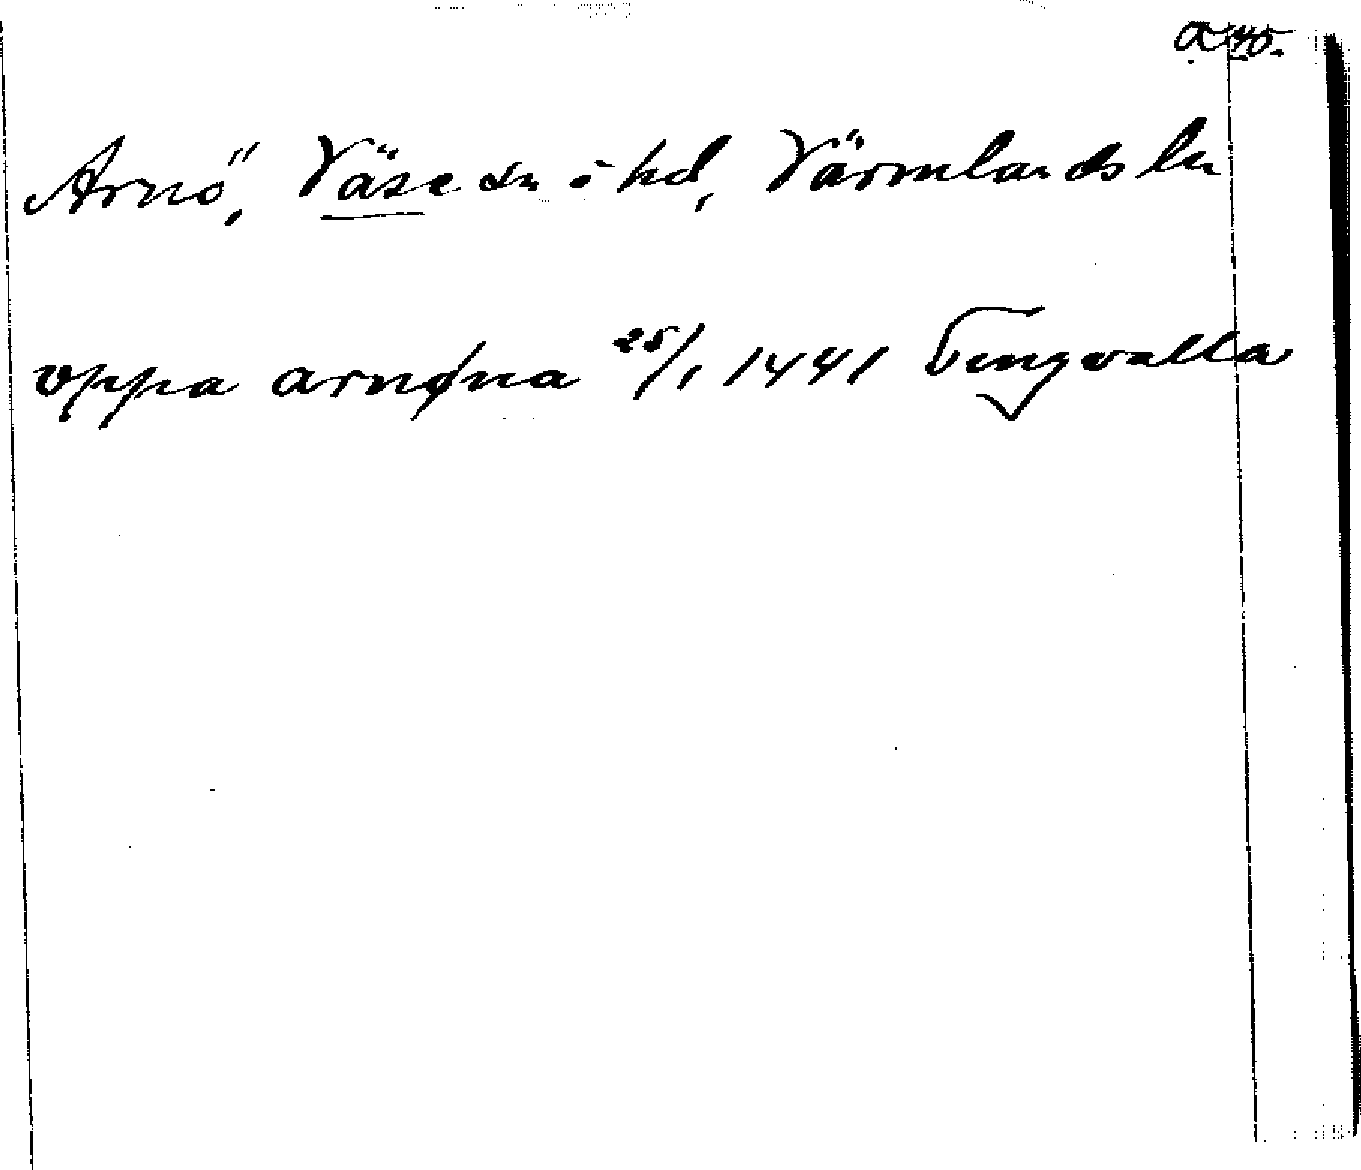 Arnö, Väse sn o hd, Värmlands ln
oppa arnøna 25/1 1441 Tingvalla